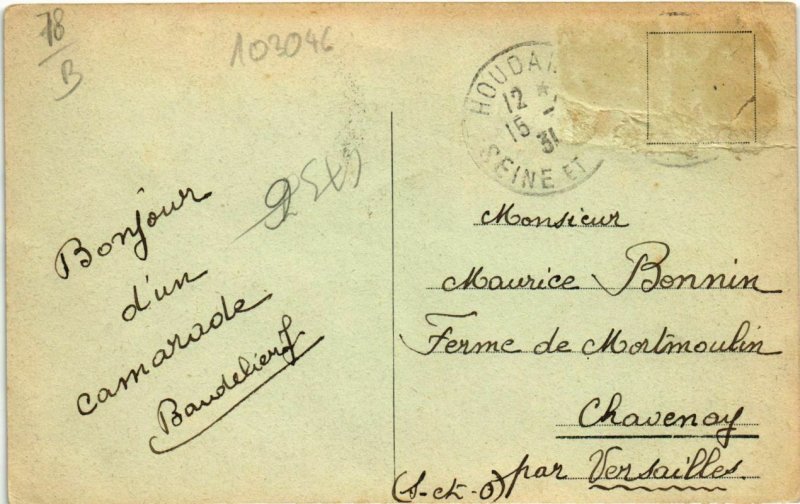 78
B
103046
Bonjour
d'un
camarade
Baudelier J
HOUDAN
12 *
15 -
31
SEINE ET
Monsieur
Maurice Bonnin
Ferme de Mortmoulin
Chavenay
par Versailles.
(S-et-O)